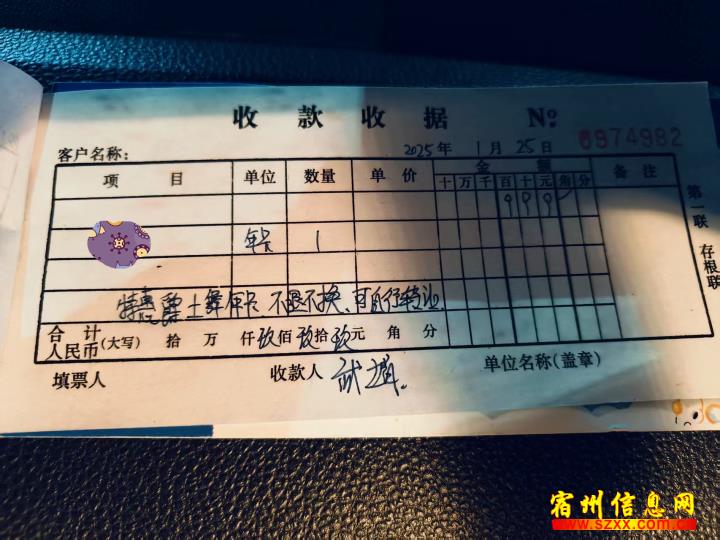 收款收据 No
2025年1月25日 6974982
客户名称:
项目 单位 数量 单价 金额 备注
十 万 千 百 十 元 角 分
9 9 9
1
特惠爵士舞年卡 不退不换、可自行转让
合计人民币(大写) 拾 万 仟 玖 佰 玖 拾 玖 元 角 分
填票人 收款人 单位名称(盖章)
第一联 存根联
宿州信息网
www.szxx.com.cn